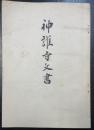 神護寺文書